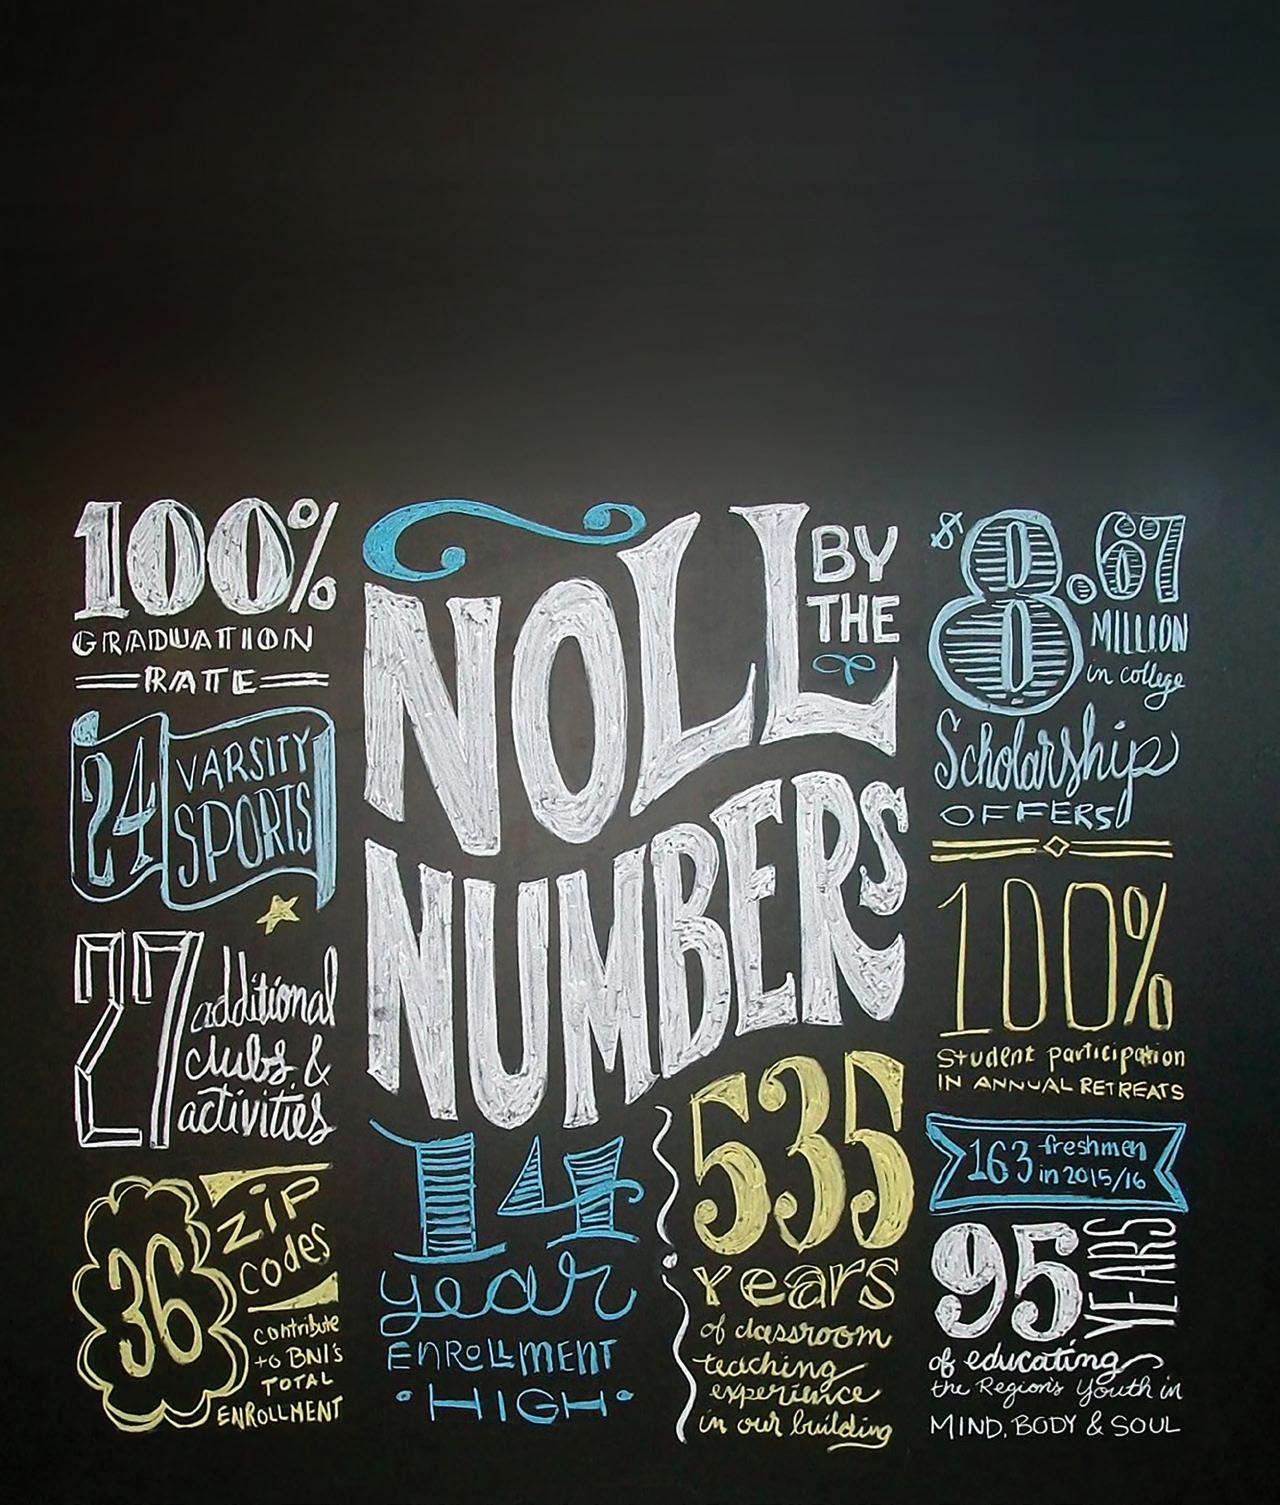 100%
GRADUATION
RATE
24 VARSITY
SPORTS
27 additional
clubs &
activities
36 ZIP
CODES
contribute
to BNI's
TOTAL
ENROLLMENT
NOLL BY
THE
NUMBERS
14
year
ENROLLMENT
HIGH
535
Years
of classroom
teaching
experience
in our building
$8.67
MILLION
in college
Scholarship
OFFERS
100%
Student participation
IN ANNUAL RETREATS
163 freshmen
in 2015/16
95 YEARS
of educating
the Region's Youth in
MIND, BODY & SOUL